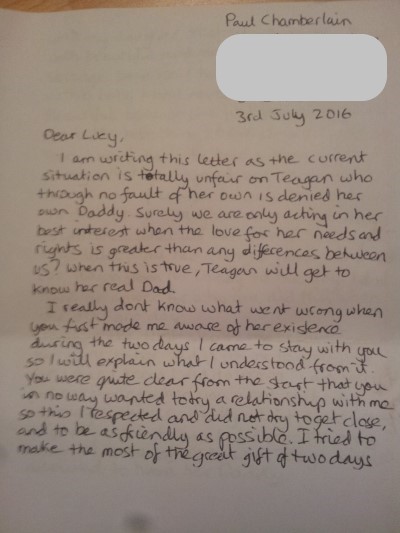 Paul Chamberlain
3rd July 2016
Dear Lucy,
I am writing this letter as the current
situation is totally unfair on Teagan who
through no fault of her own is denied her
own Daddy. Surely we are only acting in her
best interest when the love for her needs and
rights is greater than any differences between
us? When this is true, Teagan will get to
know her real Dad.
I really dont know what went wrong when
you first made me aware of her existence
during the two days I came to stay with you
so I will explain what I understood from it.
You were quite clear from the start that you
in no way wanted to try a relationship with me
so this I respected and did not try to get close,
and to be as friendly as possible. I tried to
make the most of the great gift of two days